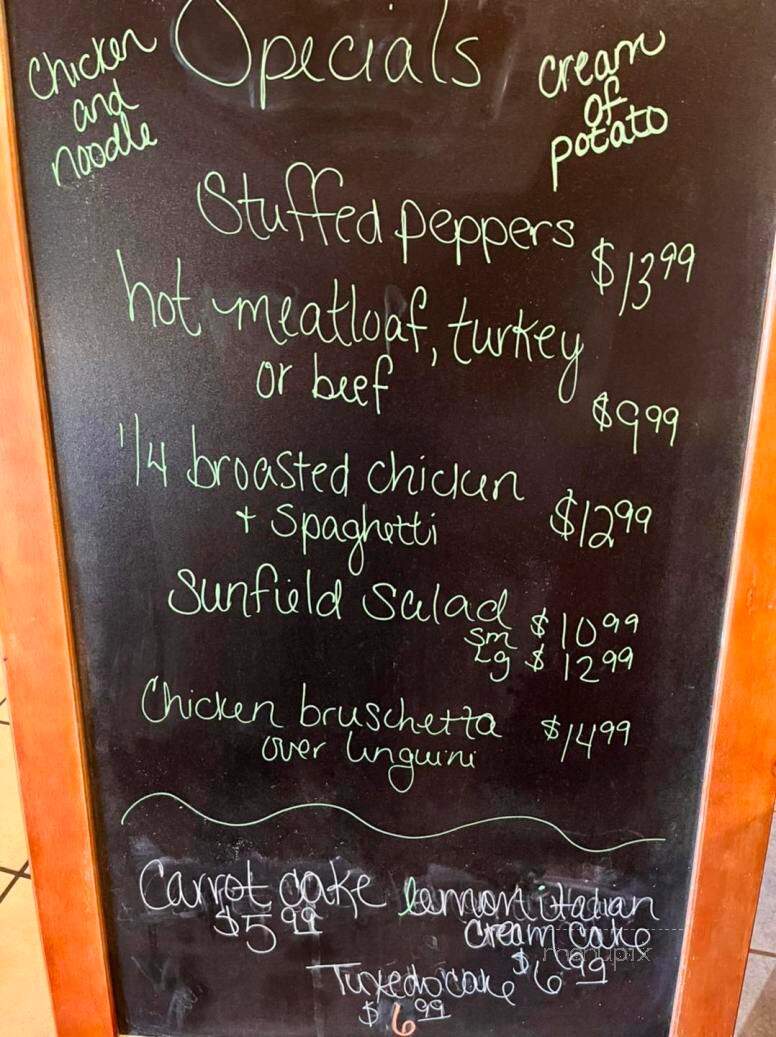 Specials
Chicken
and
noodle
cream
of
potato
Stuffed peppers
$13.99
hot meatloaf, turkey
or beef
$9.99
1/4 broasted chicken
+ Spaghetti
$12.99
Sunfield Salad
sm $10.99
Lg $12.99
Chicken bruschetta
over linguini
$14.99
Carrot cake
$5.99
lemon italian
cream cake
$6.99
Tuxedo cake
$6.99
menupix